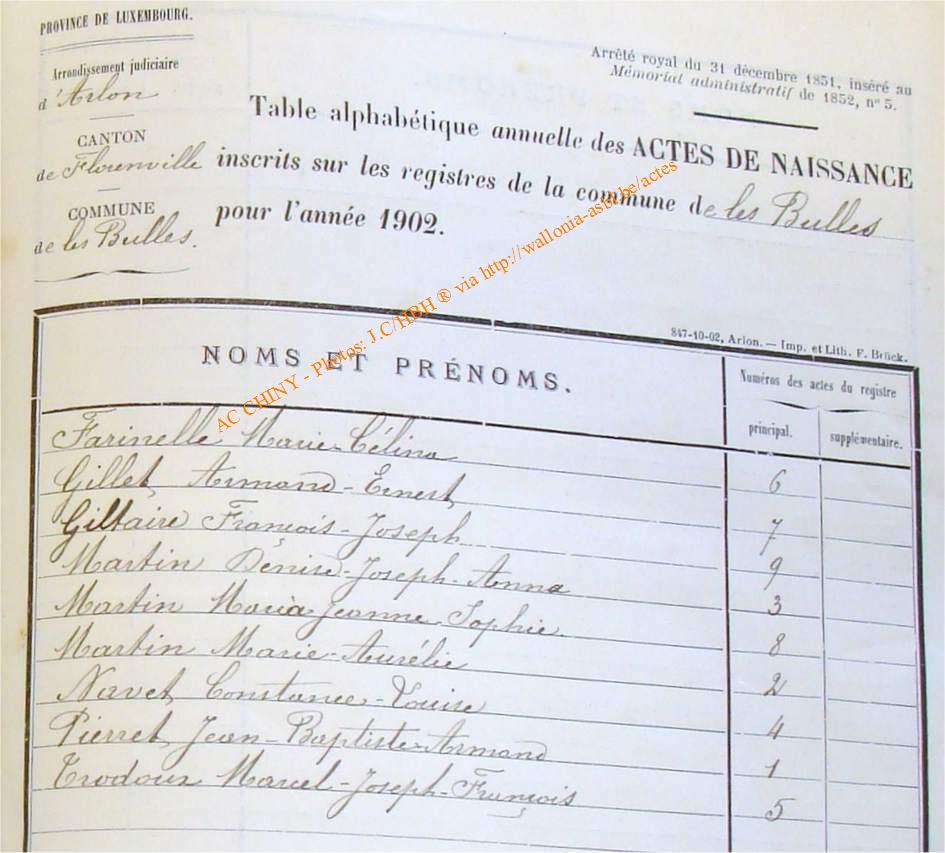 PROVINCE DE LUXEMBOURG.
Arrondissement judiciaire
d'Arlon
CANTON
de Florenville
COMMUNE
de les Bulles.
Arrêté royal du 31 décembre 1851, inséré au
Mémorial administratif de 1852, n° 5.
Table alphabétique annuelle des ACTES DE NAISSANCE
inscrits sur les registres de la commune de les Bulles
pour l'année 1902.
AC CHINY - Photos: J.C/HBH ® via http://wallonia-asbl.be/actes
847-10-02, Arlon. — Imp. et Lith. F. Brück.
NOMS ET PRÉNOMS.
Numéros des actes du registre
principal.
supplémentaire.
Farinelle Marie-Célina 6
Gillet Armand-Ernest 7
Giltaire François-Joseph 9
Martin Dénise-Joseph-Anna 3
Martin Maria Jeanne Sophie 8
Martin Marie-Aurélie 2
Navet Constance-Louise 4
Pierret Jean-Baptiste-Armand 1
Trodoux Marcel-Joseph-François 5